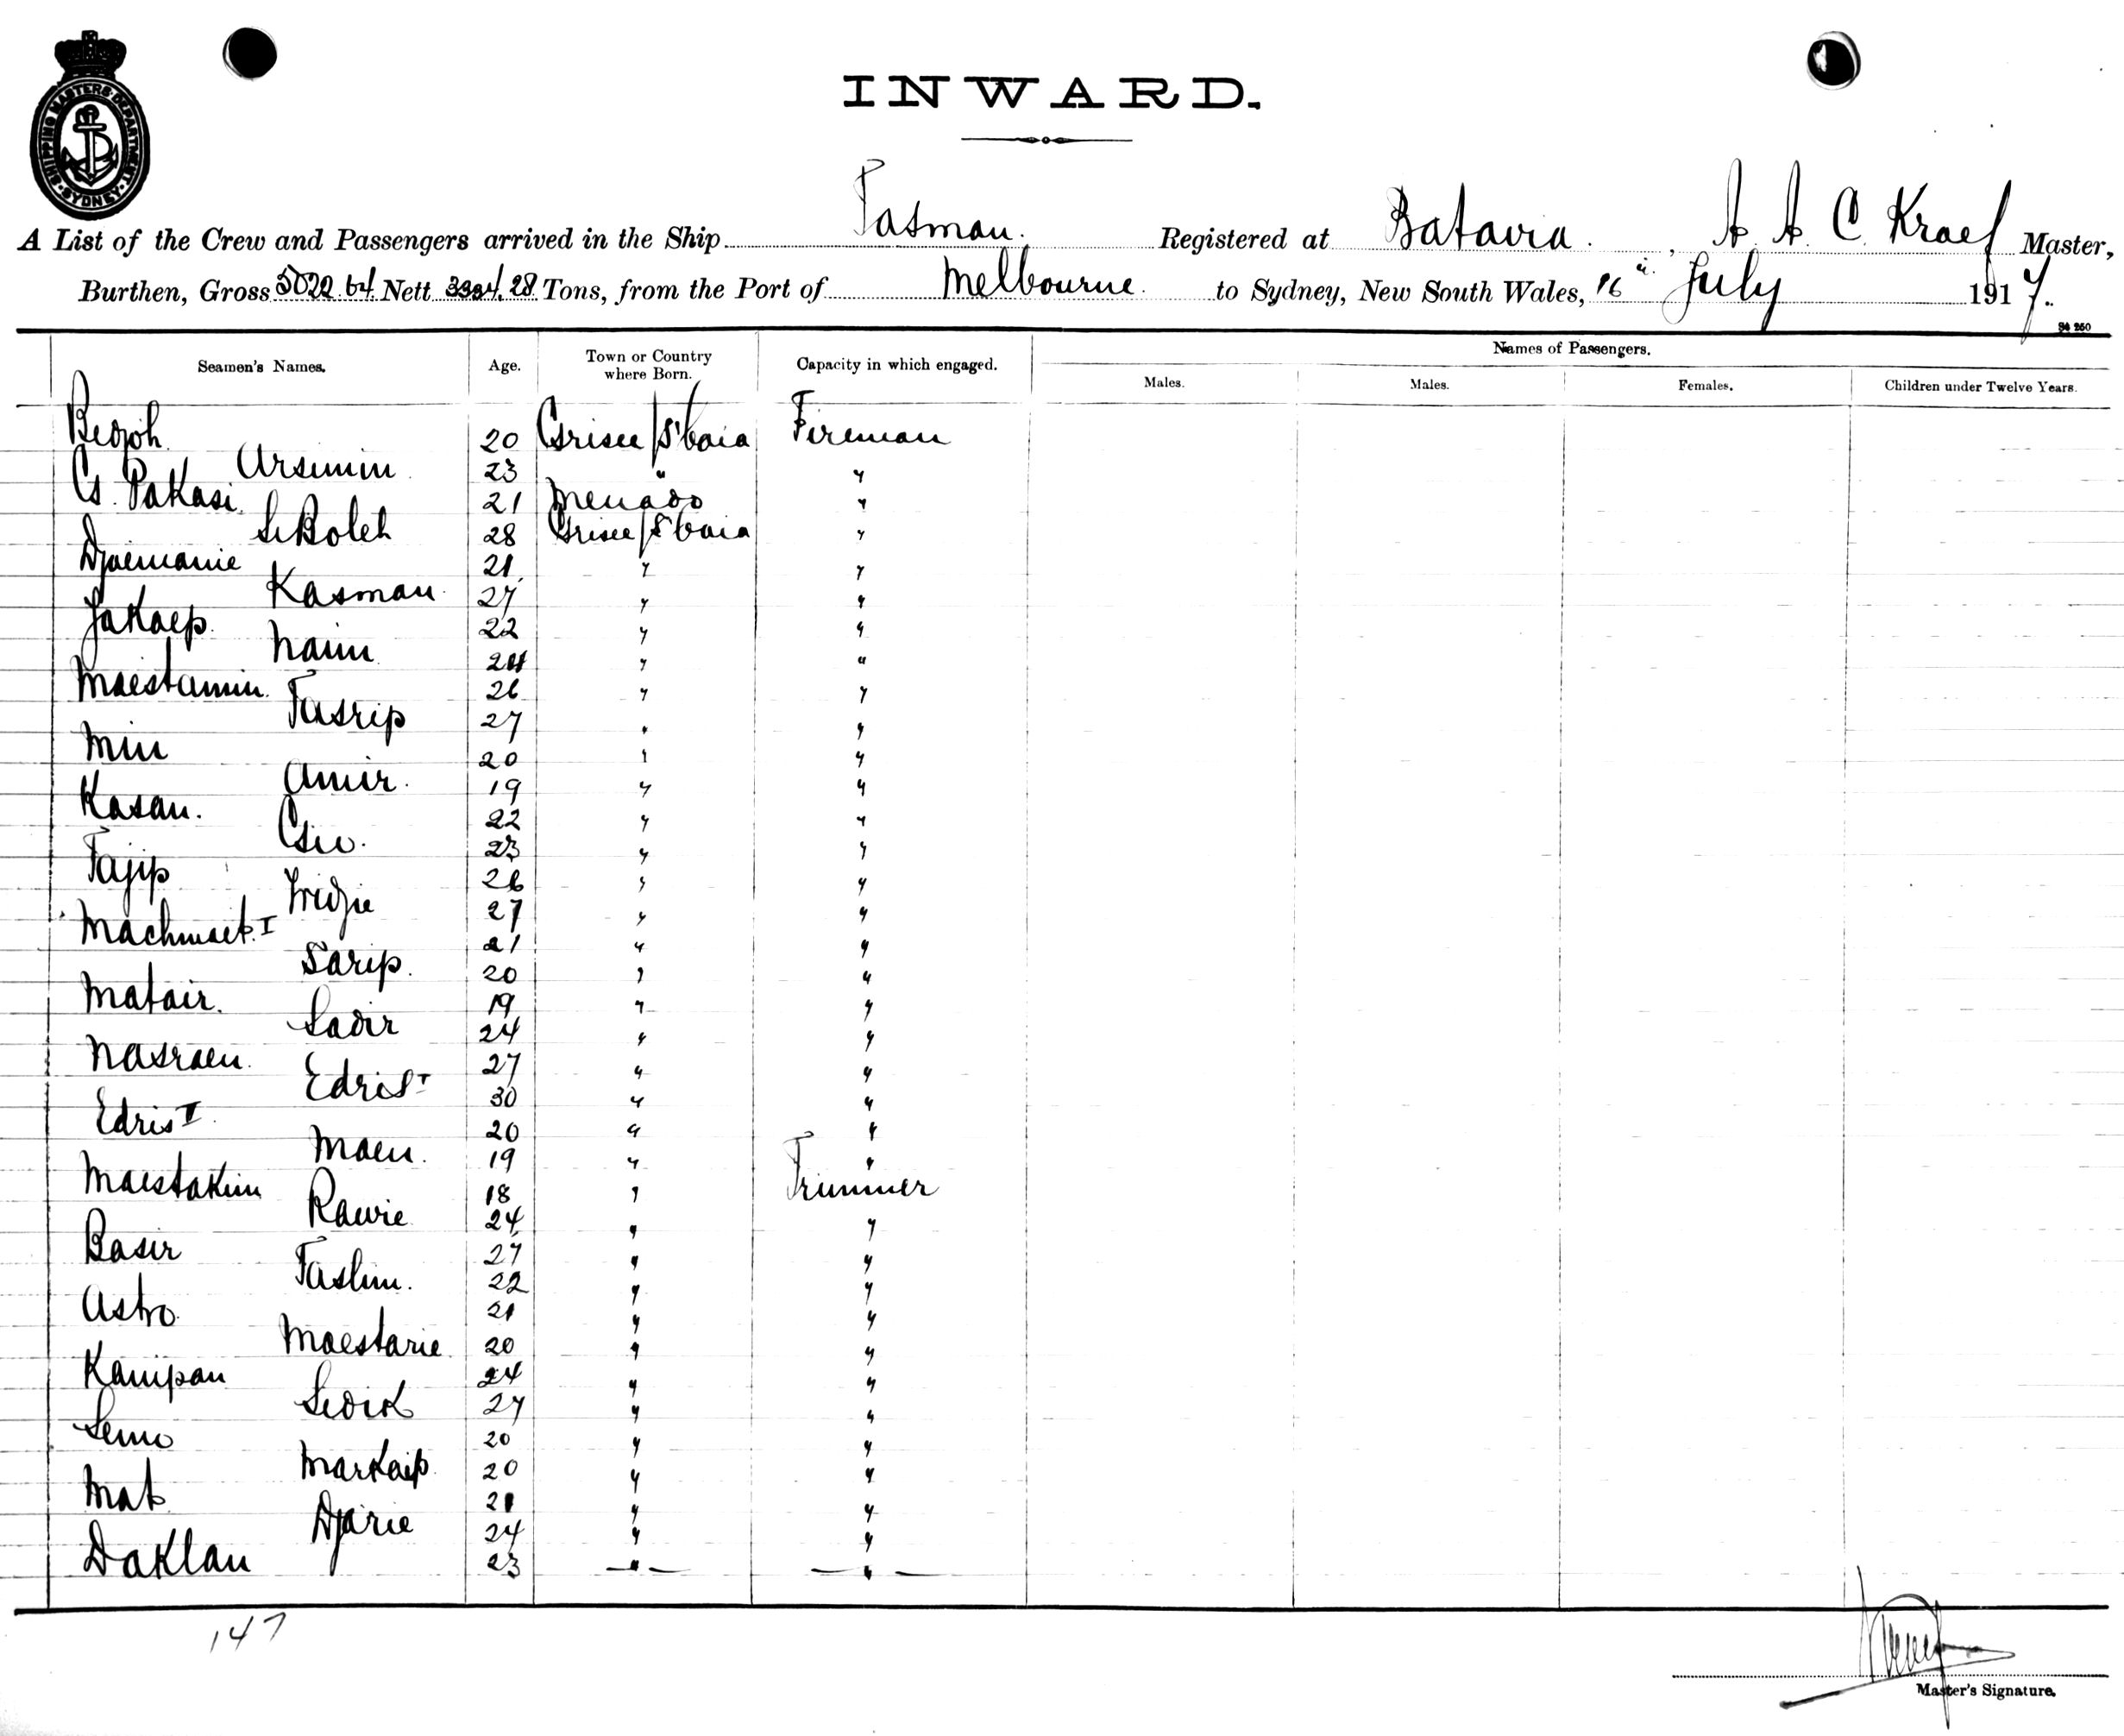 SHIPPING MASTERS DEPARTMENT SYDNEY
INWARD.
A List of the Crew and Passengers arrived in the Ship Tasman. Registered at Batavia. A. A. C. Kraef Master,
Burthen, Gross 5022.64 Nett 28 Tons, from the Port of Melbourne. to Sydney, New South Wales, 16 July 1917.
S4 250
Seamen's Names. Age. Town or Country where Born. Capacity in which engaged. Names of Passengers.
Males. Males. Females. Children under Twelve Years.
20 Grisee/S'baia Fireman
Arsimin 23 " "
G. Pakasi 21 Menado "
Siboleh 28 Grisee/S'baia "
Djaemanie 21 " "
Kasman 27 " "
Jakaep. 22 " "
Naim 24 " "
Maestamin. 26 " "
Tasrip 27 " "
Min 20 " "
Amir. 19 " "
Kasan. 22 " "
23 " "
Tajip 26 " "
27 " "
Machmaet. I 21 " "
Sarip. 20 " "
Matair. 19 " "
Sadir 24 " "
Nasraen. 27 " "
Edris I 30 " "
Edris II 20 " "
Maen. 19 " "
Maestakim 18 " Trimmer
Rawie 24 " "
Basir 27 " "
Taslim. 22 " "
Astro. 21 " "
Maestarie. 20 " "
Kanipan 24 " "
Sidik 27 " "
Semo 20 " "
Markaip. 20 " "
Mat 21 " "
Djarie 24 " "
Daklan 23 " "
147
Master's Signature.